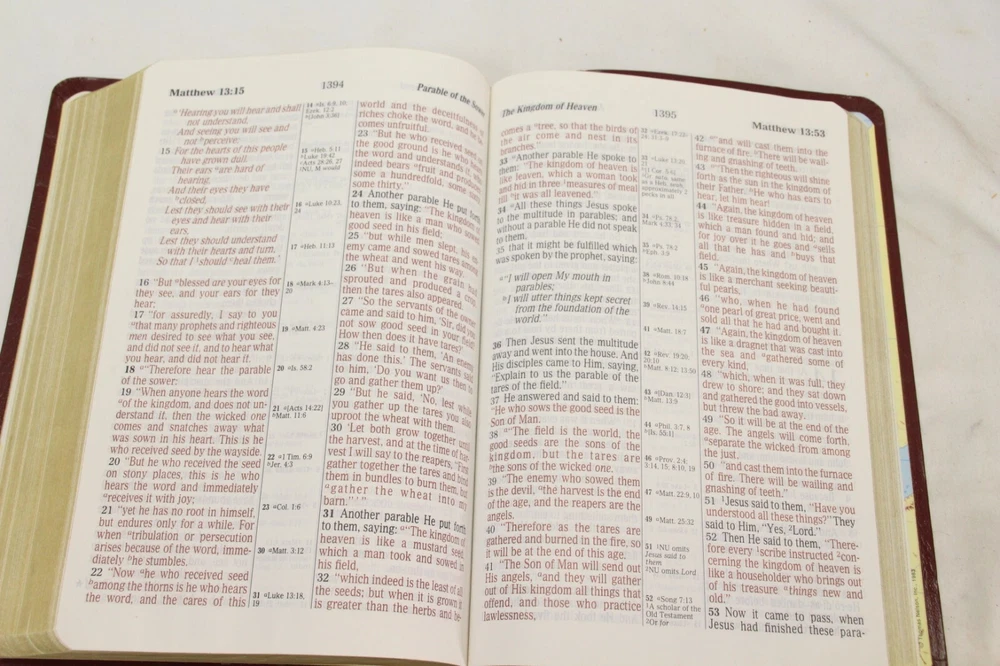 Matthew 13:15
1394
Parable of the Sower
'Hearing you will hear and shall
not understand,
And seeing you will see and
not perceive;
15 For the hearts of this people
have grown dull.
Their ears are hard of
hearing,
And their eyes they have
closed,
Lest they should see with their
eyes and hear with their
ears,
Lest they should understand
with their hearts and turn,
So that I should heal them.'
16 "But blessed are your eyes for
they see, and your ears for they
hear;
17 "for assuredly, I say to you
that many prophets and righteous
men desired to see what you see,
and did not see it, and to hear what
you hear, and did not hear it.
18 "Therefore hear the parable
of the sower:
19 "When anyone hears the word
of the kingdom, and does not un-
derstand it, then the wicked one
comes and snatches away what
was sown in his heart. This is he
who received seed by the wayside.
20 "But he who received the seed
on stony places, this is he who
hears the word and immediately
receives it with joy;
21 "yet he has no root in himself,
but endures only for a while. For
when tribulation or persecution
arises because of the word, imme-
diately he stumbles.
22 "Now he who received seed
among the thorns is he who hears
the word, and the cares of this
14 Is. 6:9, 10;
15 Heb. 5:11
Luke 19:42
Acts 28:26, 27
NU, M would
16 Luke 10:23,
24
17 Heb. 11:13
18 Mark 4:13–
20
19 Matt. 4:23
20 Is. 58:2
21 [Acts 14:22]
Matt. 11:6
22 1 Tim. 6:9
Jer. 4:3
23 Col. 1:6
30 Matt. 3:12
31 Luke 13:18,
19
world and the deceitfulness of
riches choke the word, and he be-
comes unfruitful.
23 "But he who received seed on
the good ground is he who hears
the word and understands it, who
indeed bears fruit and produces:
some a hundredfold, some sixty,
some thirty."
24 Another parable He put forth
to them, saying: "The kingdom of
heaven is like a man who sowed
good seed in his field;
25 "but while men slept, his en-
emy came and sowed tares among
the wheat and went his way.
26 "But when the grain had
sprouted and produced a crop,
then the tares also appeared.
27 "So the servants of the owner
came and said to him, 'Sir, did you
not sow good seed in your field?
How then does it have tares?'
28 "He said to them, 'An enemy
has done this.' The servants said
to him, 'Do you want us then to
go and gather them up?'
29 "But he said, 'No, lest while
you gather up the tares you also
uproot the wheat with them.
30 'Let both grow together until
the harvest, and at the time of har-
vest I will say to the reapers, "First
gather together the tares and bind
them in bundles to burn them, but
gather the wheat into my
barn." ' "
31 Another parable He put forth
to them, saying: "The kingdom of
heaven is like a mustard seed,
which a man took and sowed in
his field,
32 "which indeed is the least of all
the seeds; but when it is grown it
is greater than the herbs and be-
The Kingdom of Heaven
1395
Matthew 13:53
comes a tree, so that the birds of
the air come and nest in its
branches."
33 Another parable He spoke to
them: "The kingdom of heaven is
like leaven, which a woman took
and hid in three measures of meal
till it was all leavened."
34 All these things Jesus spoke
to the multitude in parables; and
without a parable He did not speak
to them,
35 that it might be fulfilled which
was spoken by the prophet, saying:
"I will open My mouth in
parables;
I will utter things kept secret
from the foundation of the
world."
36 Then Jesus sent the multitude
away and went into the house. And
His disciples came to Him, saying,
"Explain to us the parable of the
tares of the field."
37 He answered and said to them:
"He who sows the good seed is the
Son of Man.
38 "The field is the world, the
good seeds are the sons of the
kingdom, but the tares are
the sons of the wicked one.
39 "The enemy who sowed them
is the devil, the harvest is the end
of the age, and the reapers are the
angels.
40 "Therefore as the tares are
gathered and burned in the fire, so
it will be at the end of this age.
41 "The Son of Man will send out
His angels, and they will gather
out of His kingdom all things that
offend, and those who practice
lawlessness,
33 Luke 13:20,
21
[1 Cor. 5:6]
34 Mark 4:33, 34
35 Ps. 78:2
Eph. 3:9
38 Rom. 10:18
John 8:44
39 Rev. 14:15
41 Matt. 18:7
42 Rev. 19:20;
20:10
Matt. 8:12; 13:50
43 [Dan. 12:3]
Matt. 13:9
44 Phil. 3:7, 8
[Is. 55:1]
46 Prov. 2:4;
3:14, 15; 8:10, 19
47 Matt. 22:9, 10
49 Matt. 25:32
51 NU omits
Jesus said to
them
NU omits Lord
52 Song 7:13
A scholar of the
Old Testament
Or for
42 "and will cast them into the
furnace of fire. There will be wail-
ing and gnashing of teeth.
43 "Then the righteous will shine
forth as the sun in the kingdom of
their Father. He who has ears to
hear, let him hear!
44 "Again, the kingdom of heaven
is like treasure hidden in a field,
which a man found and hid; and
for joy over it he goes and sells
all that he has and buys that
field.
45 "Again, the kingdom of heaven
is like a merchant seeking beauti-
ful pearls,
46 "who, when he had found
one pearl of great price, went and
sold all that he had and bought it.
47 "Again, the kingdom of heaven
is like a dragnet that was cast into
the sea and gathered some of
every kind,
48 "which, when it was full, they
drew to shore; and they sat down
and gathered the good into vessels,
but threw the bad away.
49 "So it will be at the end of the
age. The angels will come forth,
separate the wicked from among
the just,
50 "and cast them into the furnace
of fire. There will be wailing and
gnashing of teeth."
51 Jesus said to them, "Have you
understood all these things?" They
said to Him, "Yes, Lord."
52 Then He said to them, "There-
fore every scribe instructed con-
cerning the kingdom of heaven is
like a householder who brings out
of his treasure things new and
old."
53 Now it came to pass, when
Jesus had finished these para-